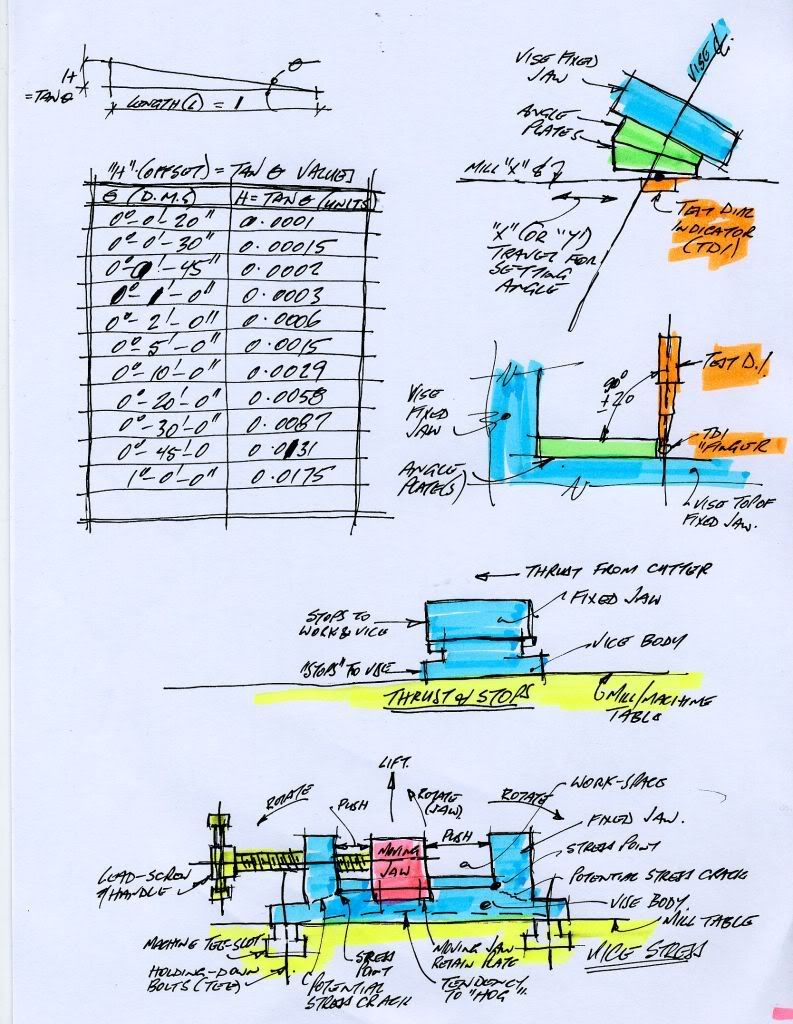 H
= TAN θ
LENGTH (L) = 1
θ
"H" (OFFSET) = TAN θ VALUES
θ (D.M.S) H = TAN θ (UNITS)
0°-0'-20" 0.0001
0°-0'-30" 0.00015
0°-0'-45" 0.0002
0°-1'-0" 0.0003
0°-2'-0" 0.0006
0°-5'-0" 0.0015
0°-10'-0" 0.0029
0°-20'-0" 0.0058
0°-30'-0" 0.0087
0°-45'-0 0.0131
1°-0'-0" 0.0175
VISE ℄
VISE FIXED
JAW
ANGLE
PLATES
MILL "X" ℄
"X" (OR "Y")
TRAVEL FOR
SETTING
ANGLE
TEST DIAL
INDICATOR
(TDI)
VISE
FIXED
JAW
90°
±20
TEST D.I
TDI
"FINGER
ANGLE
PLATE(S)
VISE TOP OF
FIXED JAW.
THRUST FROM CUTTER
FIXED JAW
STOPS TO
WORK & VICE
VICE BODY
"STOPS" TO VISE
THRUST & STOPS
MILL/MACHINE
TABLE
LIFT.
ROTATE
PUSH
ROTATE
(JAW)
ROTATE
PUSH
WORK-SPACE
FIXED JAW.
STRESS POINT
POTENTIAL STRESS CRACK
VISE BODY.
MILL TABLE
VICE STRESS
MOVING
JAW
LEAD-SCREW
& HANDLE
MACHINE TEE-SLOT
HOLDING-DOWN
BOLTS (TEE)
STRESS
POINT
POTENTIAL
STRESS CRACK
MOVING JAW
RETAIN PLATE
TENDENCY
TO "HOG".